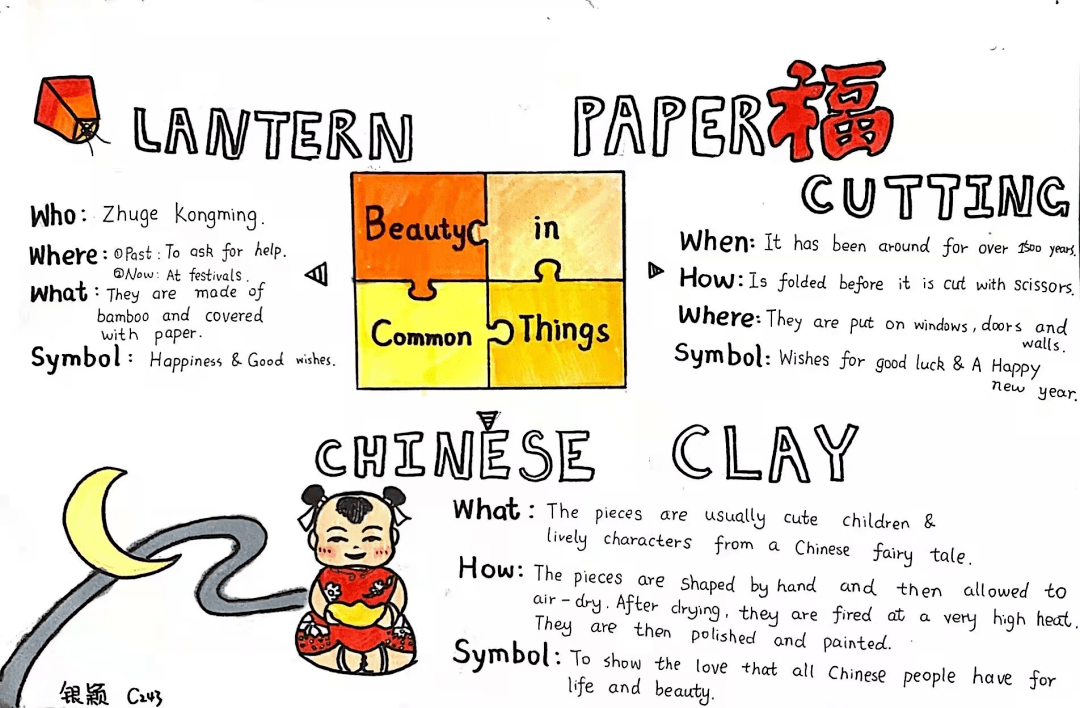 LANTERN
Who: Zhuge Kongming.
Where: ①Past: To ask for help.
②Now: At festivals.
What: They are made of
bamboo and covered
with paper.
Symbol: Happiness & Good wishes.
Beauty in
Common Things
PAPER 福
CUTTING
When: It has been around for over 1500 years.
How: Is folded before it is cut with scissors.
Where: They are put on windows, doors and
walls.
Symbol: Wishes for good luck & A Happy
new year.
CHINESE CLAY
What: The pieces are usually cute children &
lively characters from a Chinese fairy tale.
How: The pieces are shaped by hand and then allowed to
air-dry. After drying, they are fired at a very high heat.
They are then polished and painted.
Symbol: To show the love that all Chinese people have for
life and beauty.
银颖 C243